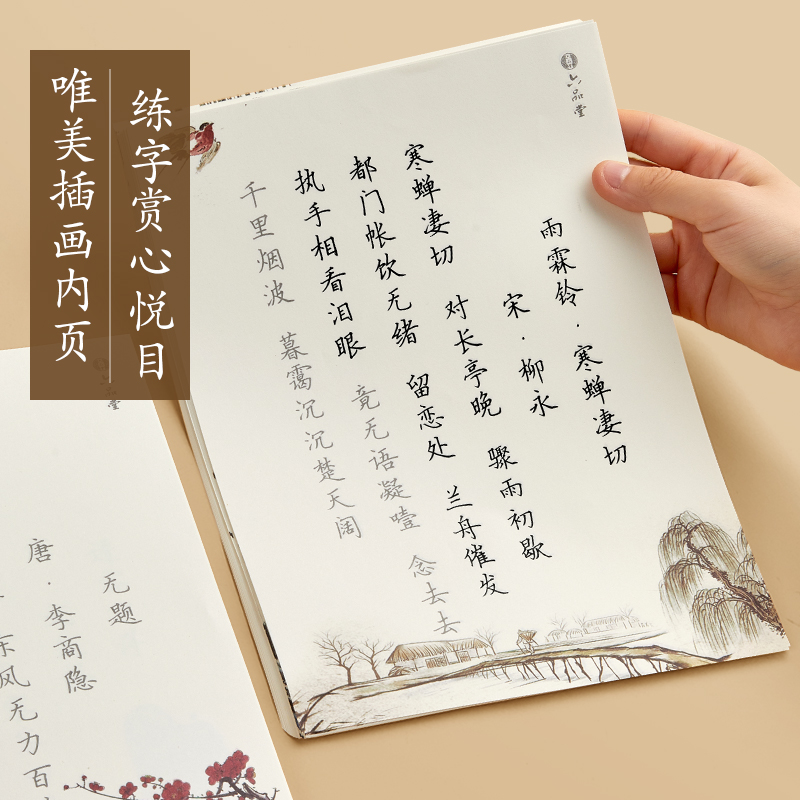 唯美插画内页
练字赏心悦目
六品堂
雨霖铃·寒蝉凄切
宋·柳永
寒蝉凄切 对长亭晚 骤雨初歇
都门帐饮无绪 留恋处 兰舟催发
执手相看泪眼 竟无语凝噎 念去去
千里烟波 暮霭沉沉楚天阔
品堂
无题
唐·李商隐
东风无力百